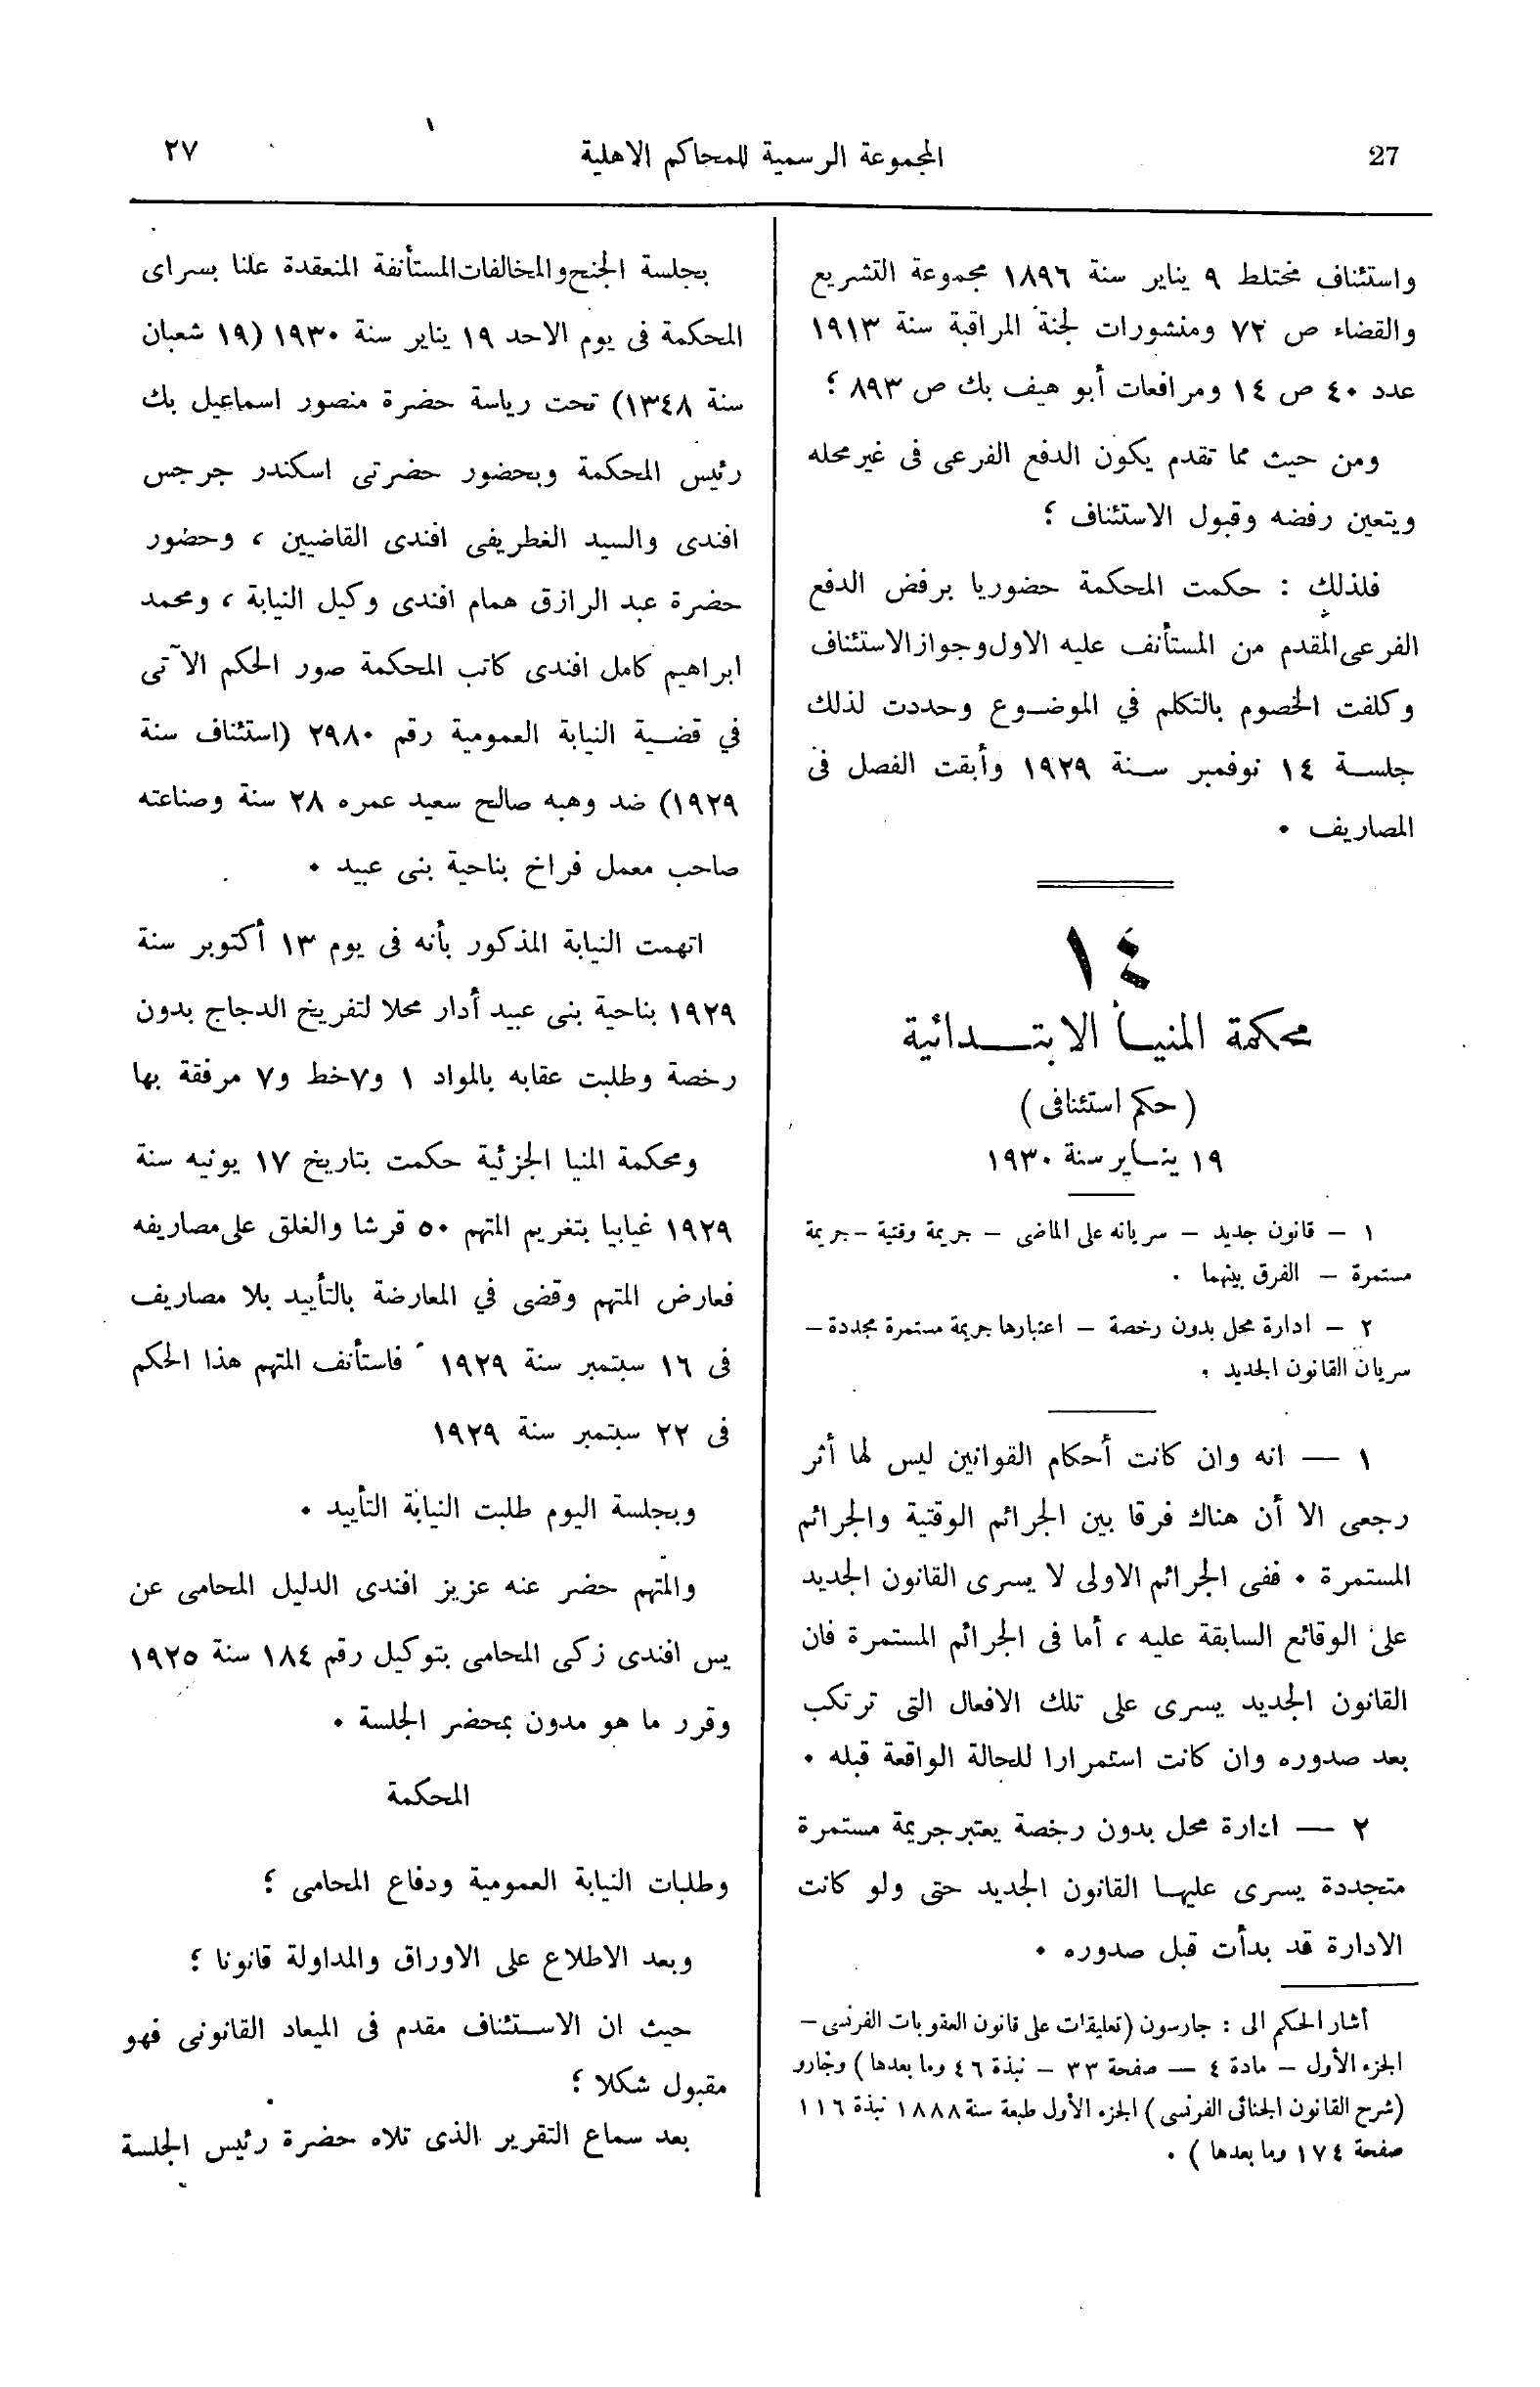 27
المجموعة الرسمية للمحاكم الاهلية
٢٧
واستئناف مختلط ٩ يناير سنة ١٨٩٦ مجموعة التشريع
والقضاء ص ٧٢ ومنشورات لجنة المراقبة سنة ١٩١٣
عدد ٤٠ ص ١٤ ومرافعات أبو هيف بك ص ٨٩٣ ؛
ومن حيث مما تقدم يكون الدفع الفرعى فى غير محله
ويتعين رفضه وقبول الاستئناف ؛
فلذلك : حكمت المحكمة حضوريا برفض الدفع
الفرعى المقدم من المستأنف عليه الاول وجواز الاستئناف
وكلفت الخصوم بالتكلم في الموضوع وحددت لذلك
جلسة ١٤ نوفمبر سنة ١٩٢٩ وأبقت الفصل فى
المصاريف ٠
١٤
محكمة المنيا الابتدائية
( حكم استئنافى )
١٩ ينساير سنة ١٩٣٠
١ – قانون جديد – سريانه على الماضى – جريمة وقتية – جريمة
مستمرة – الفرق بينهما ٠
٢ – ادارة محل بدون رخصة – اعتبارها جريمة مستمرة مجددة –
سريان القانون الجديد ٠
١ — انه وان كانت أحكام القوانين ليس لها أثر
رجعى الا أن هناك فرقا بين الجرائم الوقتية والجرائم
المستمرة ٠ ففى الجرائم الاولى لا يسرى القانون الجديد
على الوقائع السابقة عليه ، أما فى الجرائم المستمرة فان
القانون الجديد يسرى على تلك الافعال التى ترتكب
بعد صدوره وان كانت استمرارا للحالة الواقعة قبله ٠
٢ — ادارة محل بدون رخصة يعتبر جريمة مستمرة
متجددة يسرى عليها القانون الجديد حتى ولو كانت
الادارة قد بدأت قبل صدوره ٠
أشار الحكم الى : جارسون (تعليقات على قانون العقوبات الفرنسى –
الجزء الأول – مادة ٤ — صفحة ٣٣ – نبذة ٤٦ وما بعدها ) وجارو
(شرح القانون الجنائى الفرنسى ) الجزء الأول طبعة سنة ١٨٨٨ نبذة ١١٦
صفحة ١٧٤ وما بعدها ) ٠
بجلسة الجنح والمخالفات المستأنفة المنعقدة علنا بسراى
المحكمة فى يوم الاحد ١٩ يناير سنة ١٩٣٠ (١٩ شعبان
سنة ١٣٤٨) تحت رياسة حضرة منصور اسماعيل بك
رئيس المحكمة وبحضور حضرتى اسكندر جرجس
افندى والسيد الغطريفى افندى القاضيين ، وحضور
حضرة عبد الرازق همام افندى وكيل النيابة ، ومحمد
ابراهيم كامل افندى كاتب المحكمة صور الحكم الآتى
في قضية النيابة العمومية رقم ٢٩٨٠ (استئناف سنة
١٩٢٩) ضد وهبه صالح سعيد عمره ٢٨ سنة وصناعته
صاحب معمل فراخ بناحية بنى عبيد ٠
اتهمت النيابة المذكور بأنه فى يوم ١٣ أكتوبر سنة
١٩٢٩ بناحية بنى عبيد أدار محلا لتفريخ الدجاج بدون
رخصة وطلبت عقابه بالمواد ١ و٧خط و٧ مرفقة بها
ومحكمة المنيا الجزئية حكمت بتاريخ ١٧ يونيه سنة
١٩٢٩ غيابيا بتغريم المتهم ٥٠ قرشا والغلق على مصاريفه
فعارض المتهم وقضى في المعارضة بالتأييد بلا مصاريف
فى ١٦ سبتمبر سنة ١٩٢٩ فاستأنف المتهم هذا الحكم
فى ٢٢ سبتمبر سنة ١٩٢٩
وبجلسة اليوم طلبت النيابة التأييد ٠
والمتهم حضر عنه عزيز افندى الدليل المحامى عن
يس افندى زكى المحامى بتوكيل رقم ١٨٤ سنة ١٩٢٥
وقرر ما هو مدون بمحضر الجلسة ٠
المحكمة
وطلبات النيابة العمومية ودفاع المحامى ؛
وبعد الاطلاع على الاوراق والمداولة قانونا ؛
حيث ان الاستئناف مقدم فى الميعاد القانونى فهو
مقبول شكلا ؛
بعد سماع التقرير الذى تلاه حضرة رئيس الجلسة